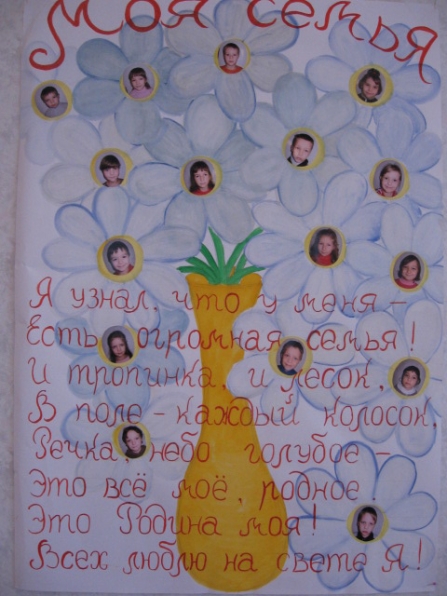 Моя семья
Я узнал, что у меня -
Есть огромная семья!
И тропинка, и лесок,
В поле - каждый колосок,
Речка, небо голубое -
Это всё моё, родное.
Это Родина моя!
Всех люблю на свете Я!